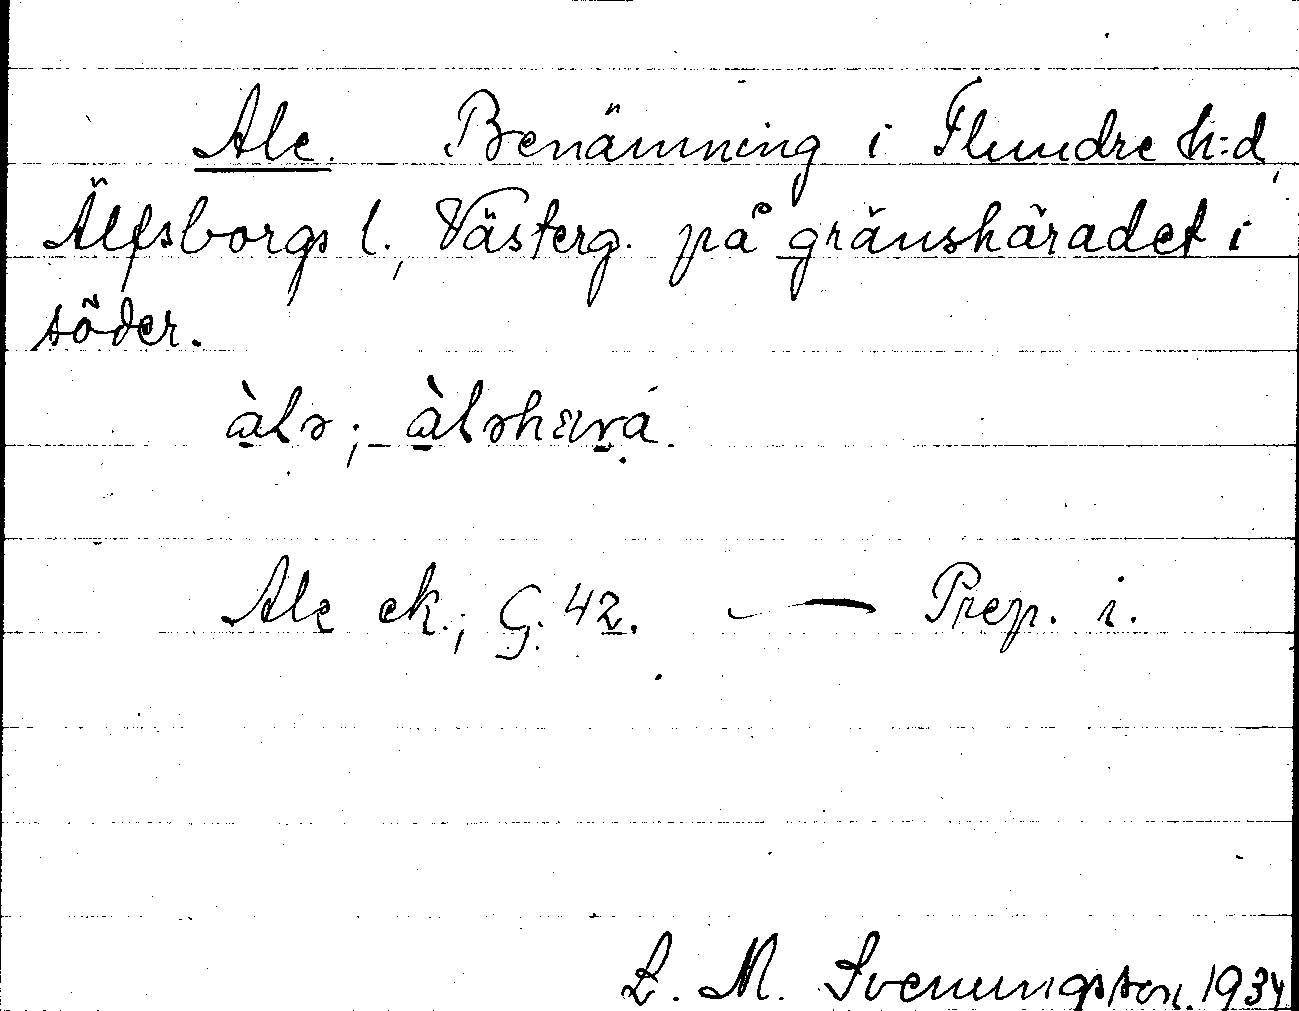 Ale. Benämning i Flundre h:d,
Älfsborgs l., Västerg. på gränshäradet i
söder.
àlə; àləhära.
Ale ek.; G. 42. — Prep. i.
L. M. Svenungsson. 1934